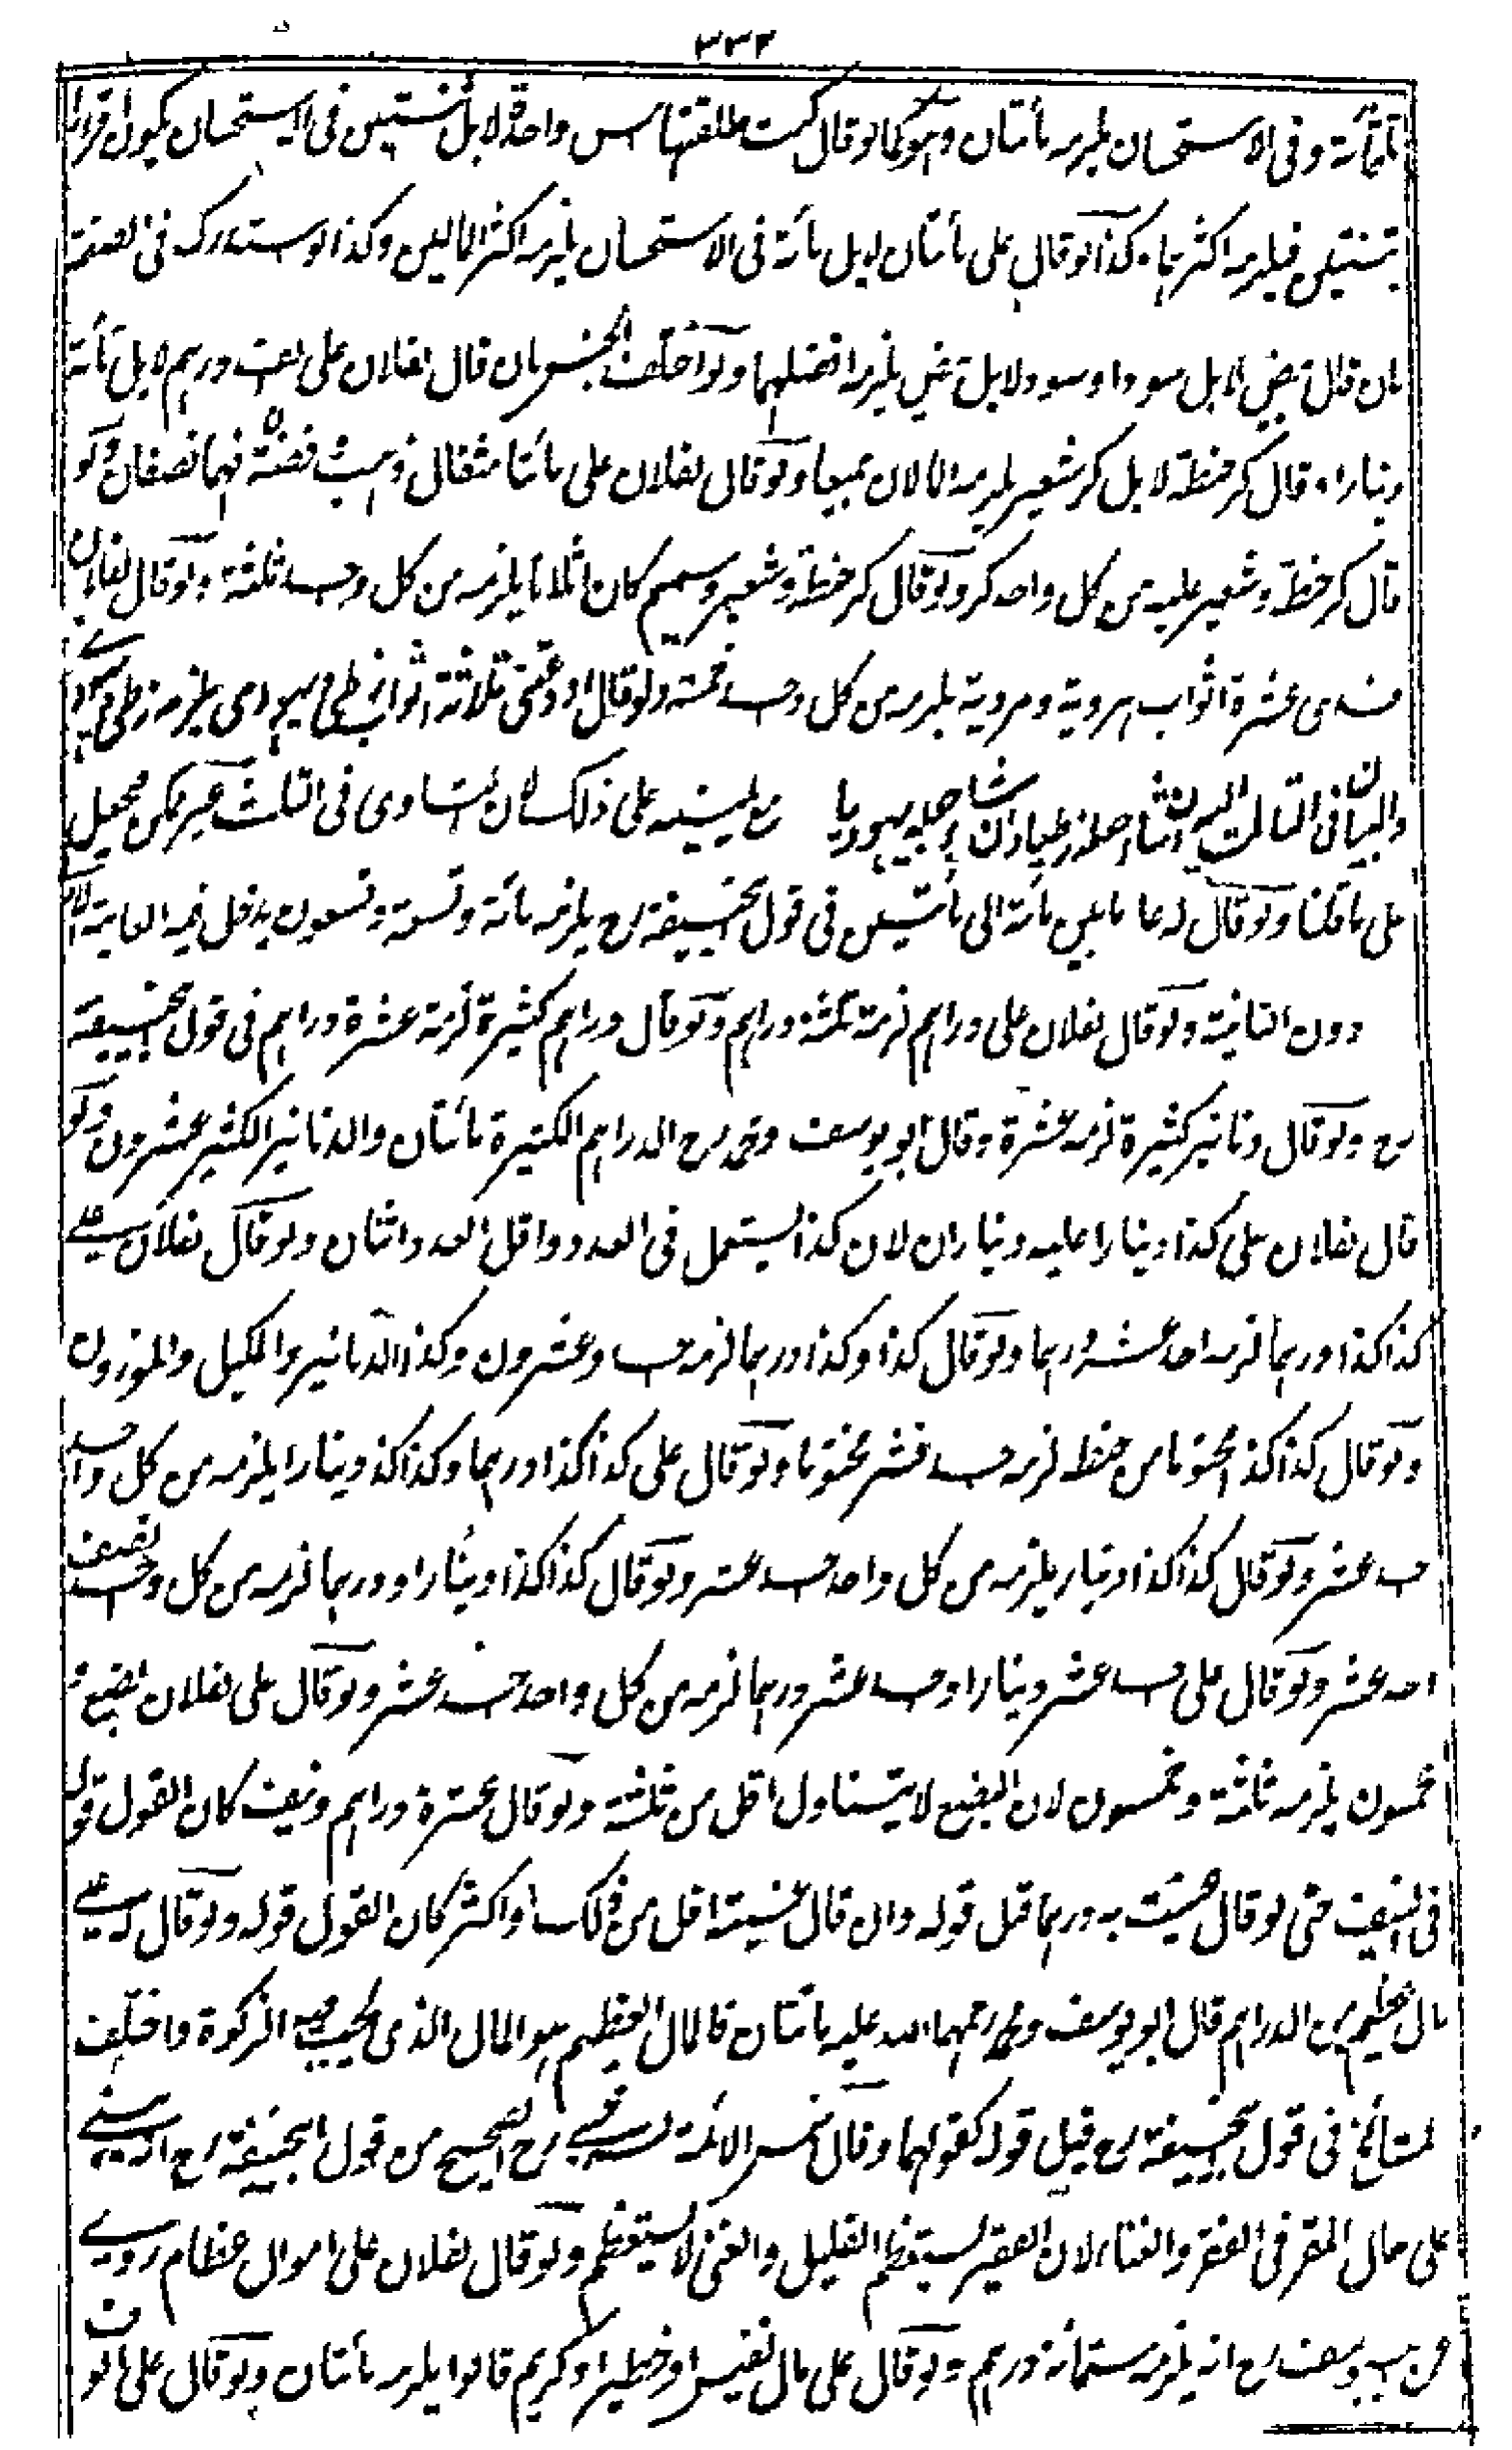 ٣٣٢
ثلثمائة وفى الاستحسان يلزمه مائتان وهو كما لو قال كنت طلقتها امس واحدة لا بل ثنتين فى الاستحسان يكون اقرارا
بثنتين فيلزمه اكثرهما وكذا لو قال على مائتان لا بل مائة فى الاستحسان يلزمه اكثر المالين وكذا لو استدرك فى الصفة
بان قال بيض لا بل سود او سود لا بل بيض يلزمه افضلهما ولو اختلف الجنس بان قال لفلان على الف درهم لا بل مائة
دينار او قال كر حنطة لا بل كر شعير يلزمه المالان جميعا ولو قال لفلان على مائتا مثقال ذهب وفضة فهما نصفان ولو
قال كر حنطة وشعير عليه من كل واحد كر ولو قال كر حنطة وشعير وسمسم كان اثلاثا يلزمه من كل واحد ثلثة ولو قال لفلان
عندى عشرة اثواب هروية ومروية يلزمه من كل واحد خمسة ولو قال اودعنى ثلاثة اثواب زطى ويهودى يلزمه زطى ويهودى
والبيان فى الثالث اليه ان شاء جعله زطيا وان شاء جعله يهوديا مع يمينه على ذلك لان التساوى فى الثلث غير ممكن
على ما قلنا ولو قال له على ما بين مائة الى مائتين فى قول ابيحنيفة رح يلزمه مائة وتسعة وتسعون يدخل فيه الغاية الاولى
دون الثانية ولو قال لفلان على دراهم لزمته ثلثة دراهم ولو قال دراهم كثيرة لزمته عشرة دراهم فى قول ابيحنيفة
رح ولو قال دنانير كثيرة لزمه عشرة وقال ابو يوسف ومحمد رح الدراهم الكثيرة مائتان والدنانير الكثير عشرون ولو
قال لفلان على كذا دينارا عليه ديناران لان كذا يستعمل فى العدد واقل العدد اثنان ولو قال لفلان على
كذا كذا درهما لزمه احد عشر درهما ولو قال كذا وكذا درهما لزمه احد وعشرون وكذا الدنانير والمكيل والموزون
ولو قال كذا كذا مختوما من حنطة لزمه احد عشر مختوما ولو قال على كذا كذا درهما وكذا كذا دينارا يلزمه من كل واحد
احد عشر ولو قال كذا كذا دينار يلزمه من كل واحد احد عشر ولو قال كذا كذا دينارا ودرهما لزمه من كل واحد نصف
احد عشر ولو قال على احد عشر دينارا واحد عشر درهما لزمه من كل واحد احد عشر ولو قال على لفلان بضع و
خمسون يلزمه ثلثة وخمسون لان البضع لا يتناول اقل من ثلثة ولو قال عشرة دراهم ونيف كان القول قوله
فى النيف حتى لو قال عنيت به درهما قبل قوله وان قال عنيت اقل من ذلك او اكثر كان القول قوله ولو قال له على
مال عظيم من الدراهم قال ابو يوسف ومحمد رحمهما الله عليه مائتان فالمال العظيم هو المال الذى يجب فيه الزكوة واختلف
المشائخ فى قول ابيحنيفة رح قيل قوله كقولهما وقال شمس الائمة السرخسى رح الصحيح من قول ابيحنيفة رح انه يبنى
على حال المقر فى الفقر والغناء لان الفقير يستعظم القليل والغنى لا يستعظم ولو قال لفلان على اموال عظام روى
عن ابى يوسف رح انه يلزمه ستمائة درهم ولو قال على مال نفيس او خطير او كريم قالوا يلزمه مائتان ولو قال على الوف